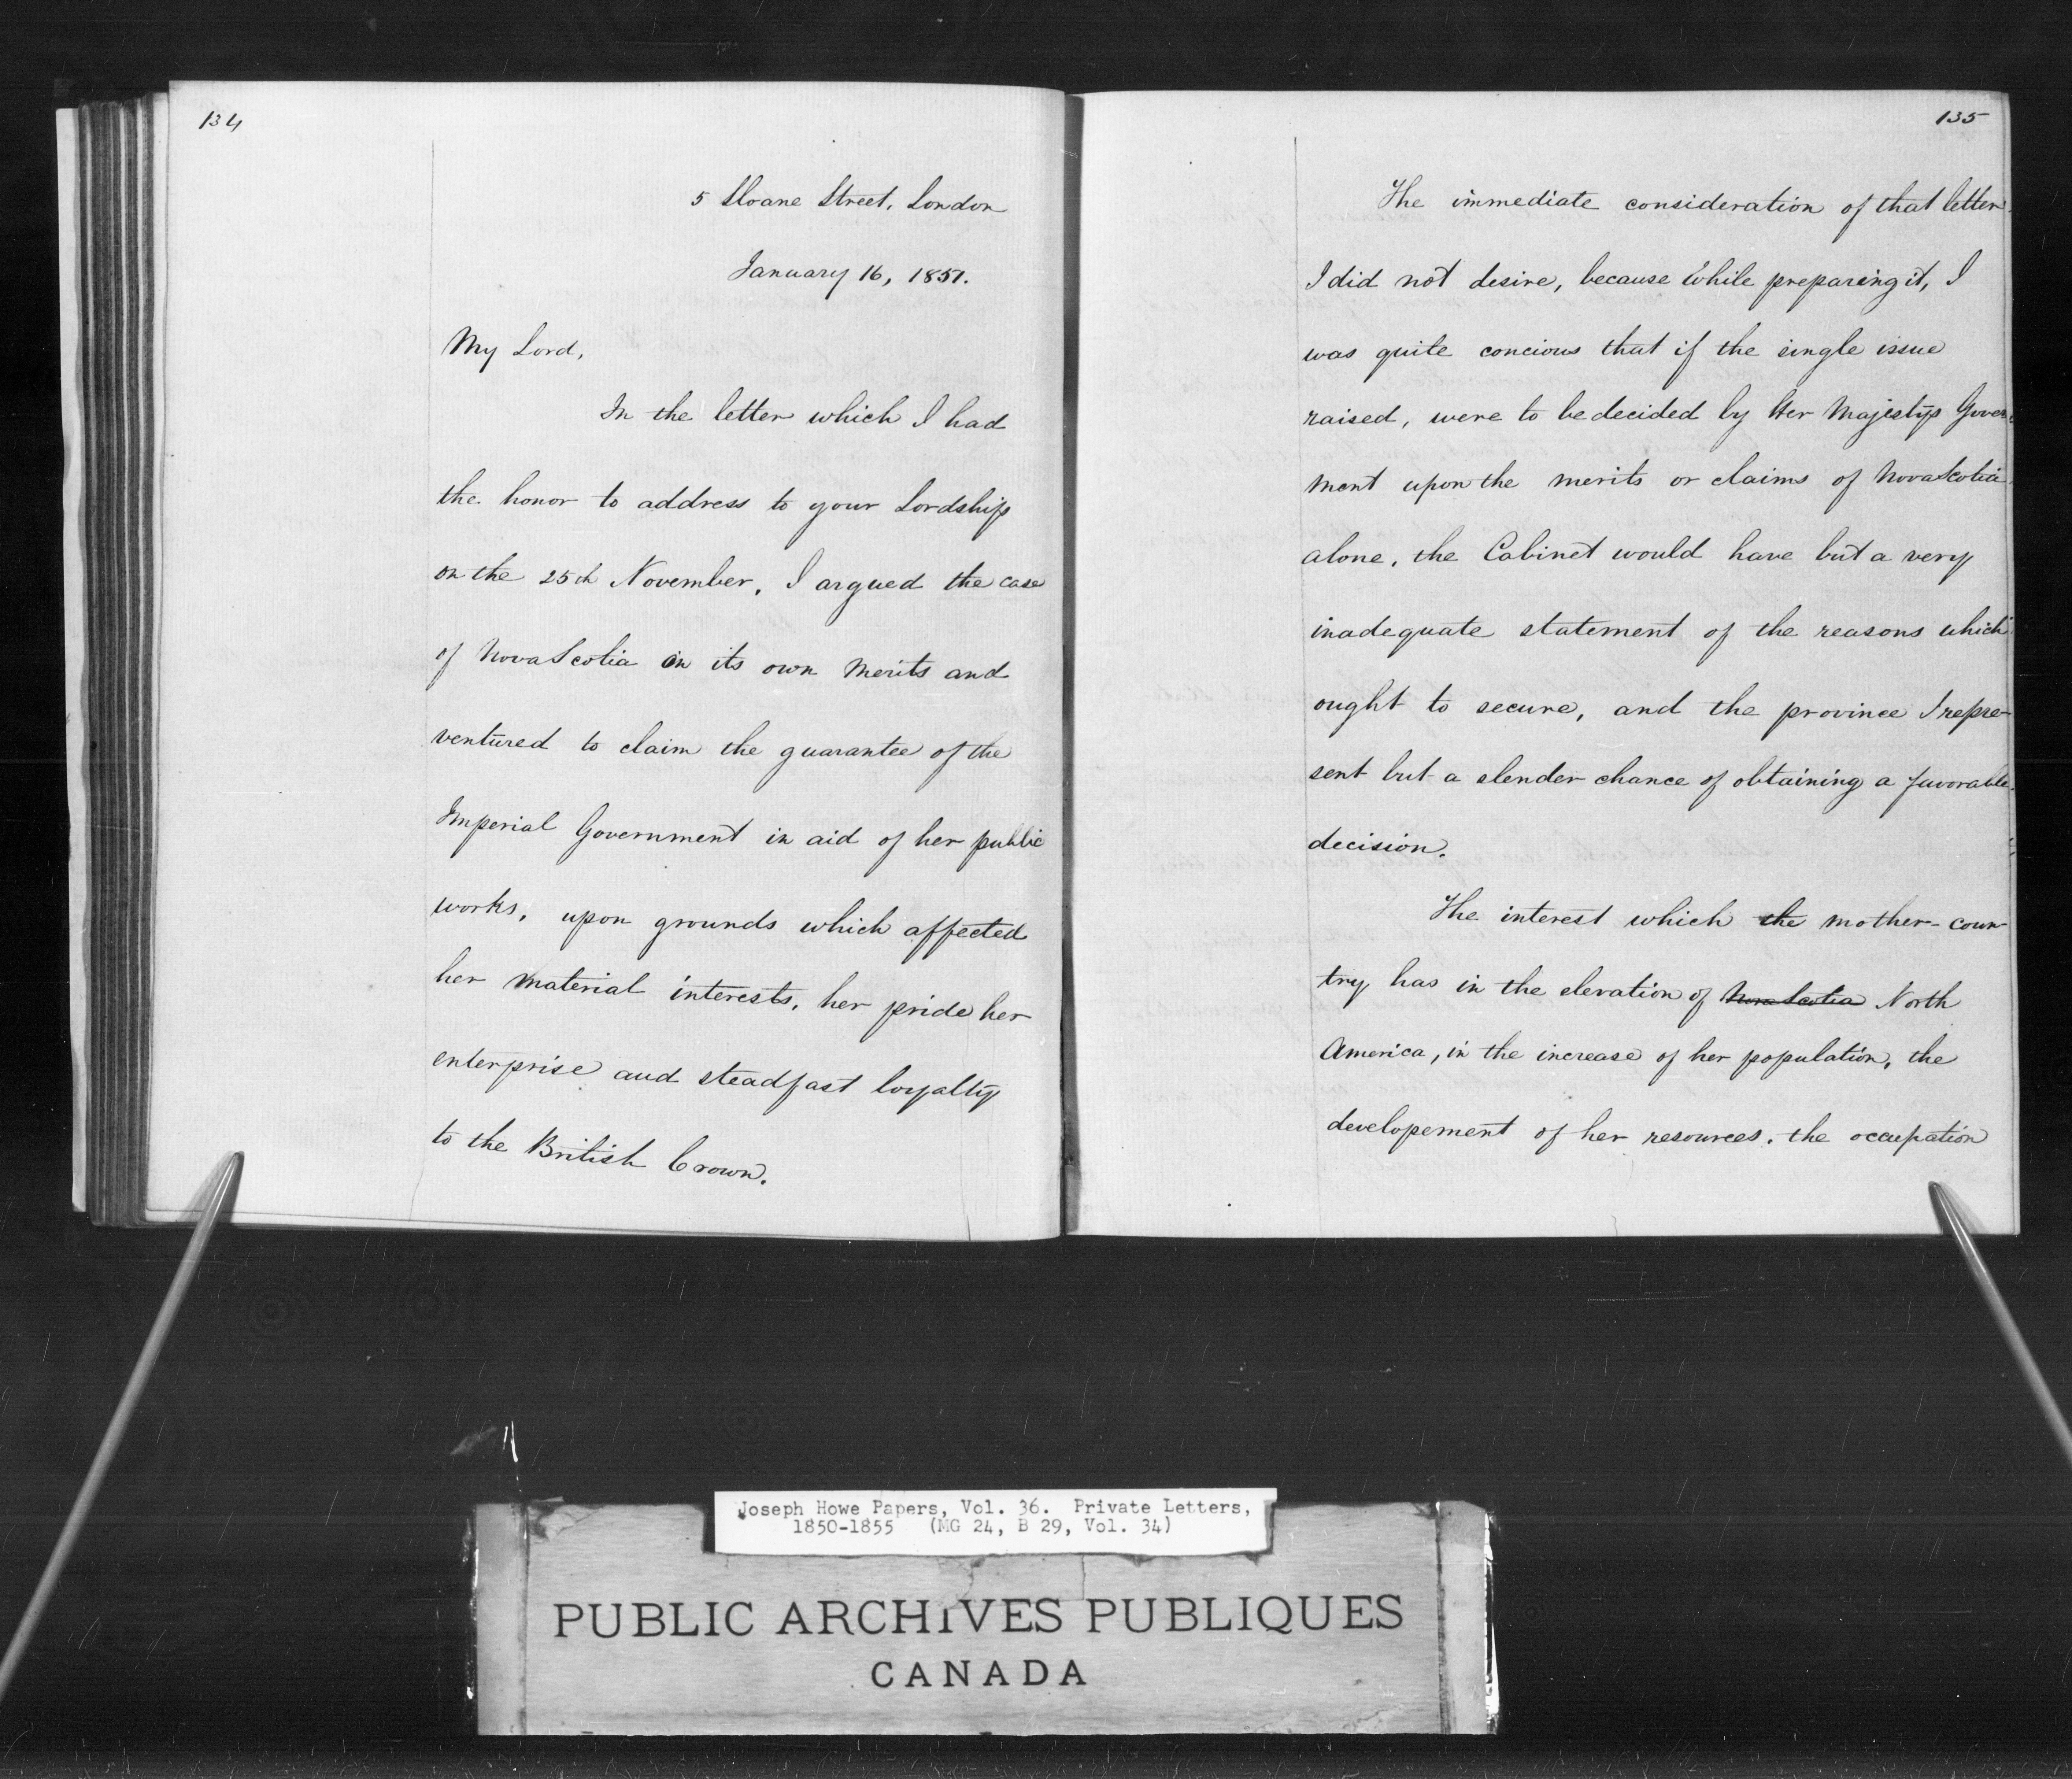 134
5 Sloane Street, London
January 16, 1851.
My Lord,
In the letter which I had
the honor to address to your Lordship
on the 25th November, I argued the case
of Nova Scotia on its own merits and
ventured to claim the guarantee of the
Imperial Government in aid of her public
works, upon grounds which affected
her material interests, her pride her
enterprise and steadfast loyalty
to the British Crown.
135
The immediate consideration of that letter
I did not desire, because while preparing it, I
was quite concious that if the single issue
raised, were to be decided by Her Majestys Govern
ment upon the merits or claims of Nova Scotia
alone, the Cabinet would have but a very
inadequate statement of the reasons which
ought to secure, and the province I repre-
sent but a slender chance of obtaining a favorable
decision.
The interest which the mother-coun
try has in the elevation of Nova Scotia North
America, in the increase of her population, the
developement of her resources, the occupation
Joseph Howe Papers, Vol. 36. Private Letters,
1850-1855 (MG 24, B 29, Vol. 34)
PUBLIC ARCHIVES PUBLIQUES
CANADA